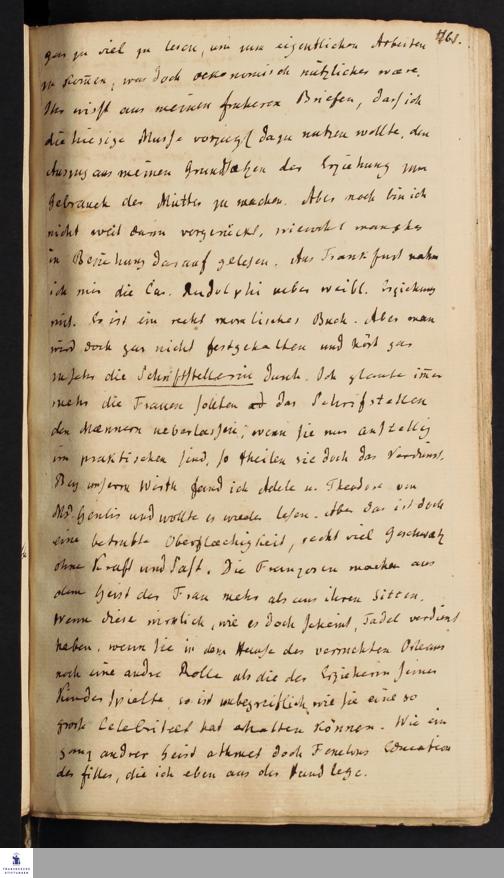 761.
gar zu viel zu lesen, um zum eigentlichen Arbeiten
zu kom̄en, was doch oekonomisch nützlicher wäre.
Ihr wisst aus meinen früheren Briefen, dass ich
die hiesige Musse vorzügl dazu nutzen wollte, den
Auszug aus meinen Grundsätzen der Erziehung zum
Gebrauch der Mütter zu machen. Aber noch bin ich
nicht weit darin vorgerückt, wiewohl manches
in Beziehung darauf gelesen. Aus Frankfurt nahm
ich mir die Car. Rudolphi ueber weibl. Erziehung
mit. Es ist ein recht moralisches Buch. Aber man
wird doch gar nicht festgehalten und hört gar
zu sehr die Schriftstellerin durch. Ich glaube im̄er
mehr die Frauen sollten das Schriftstellen
den Maennern ueberlassen; wenn sie nur anstellig
im praktischen sind, so theilen sie doch das Verdienst.
Bey unserm Wirth fand ich Adele u. Theodore von
Md. Genlis und wollte es wieder lesen. Aber das ist doch
eine betrübte Oberflaechigkeit, recht viel Geschwätz
ohne Kraft und Saft. Die Franzosen machen aus
dem Geist der Frau mehr als aus ihren Sitten.
Wenn diese nemlich, wie es doch scheint, Tadel verdient
haben, wenn sie in dem Hause des verruchten Orleans
noch eine andre Rolle als die der Erzieherin seiner
Kinder spielte, so ist unbegreiflich, wie sie eine so
grosse Celebritaet hat erhalten können. Wie ein
ganz andrer Geist athmet doch Fenelons Education
des filles, die ich eben aus der Hand lege.
FRANCKESCHE
STIFTUNGEN